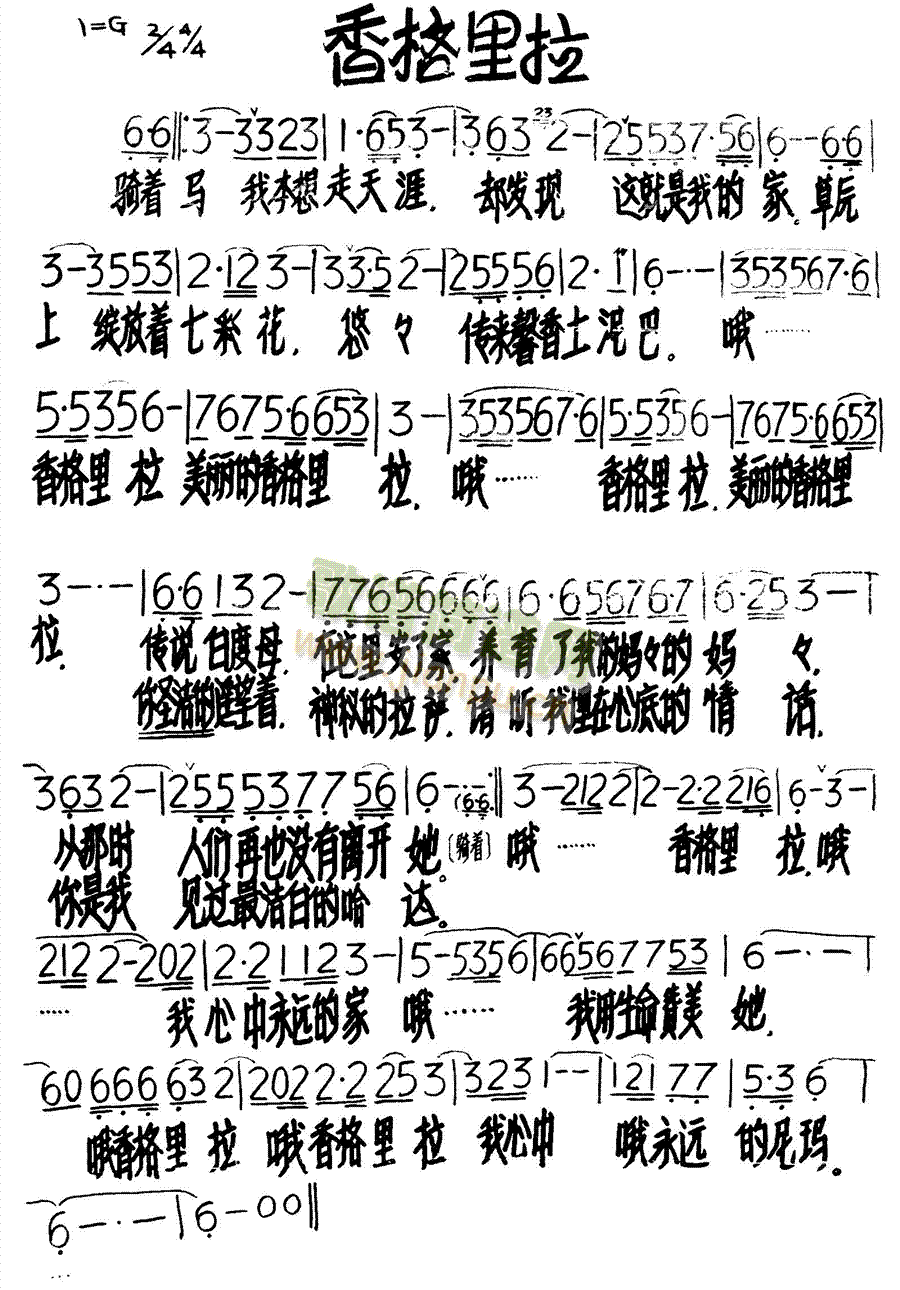 1=G 2/4 4/4
香格里拉
6·6‖:3-3323|1·653-|363 23 2-|25537·56|6--6·6|
骑着马 我本想走天涯. 却发现 这就是我的家.草原
3-3553|2·123-|33·52-|25556|2·1|6-·-|353567·6|
上 绽放着七彩花. 悠々 传来馨香土泥巴。哦……
5·5356-|7675·6653|3-|353567·6|5·5356-|7675·6653|
香格里拉 美丽的香格里 拉. 哦…… 香格里拉.美丽的香格里
3-·-|6·6132-|77656666|6·656767|6·253-|
拉. 传说白度母.在这里安了家.养育了我的妈々的妈 々.
你圣洁的 着. 神秘的拉萨.请听我埋在心底的情 话.
3632-|255537756|6-··(6·6)‖3-2122|2-2·2216|6-3-|
从那时 人们再也没有离开她。(骑着)哦…… 香格里 拉.哦
你是我 见过最洁白的哈 达。
2122-202|2·21123-|5-5356|6656 7753|6-·-|
…… 我心中永远的家 哦…… 我用生命赞美 她.
60666632|2022·2253|3231--|12177|5·36|
哦香格里 拉 哦香格里拉 我心中 哦永远 的尼玛。
6-·-|6-00‖
…